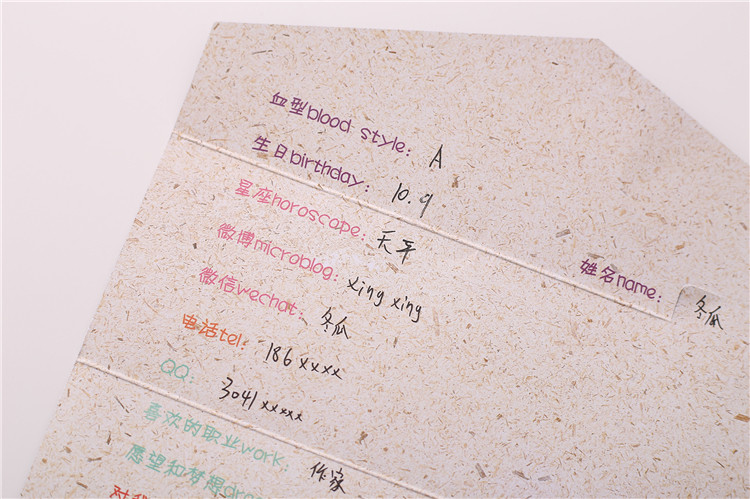 血型blood style: A
生日birthday: 10.9
星座horoscape: 天平
微博microblog: xing xing
姓名name: 冬瓜
微信wechat: 冬瓜
电话tel: 186 xxxx
QQ: 3041 xxxxx
喜欢的职业work: 作家
愿望和梦想
对